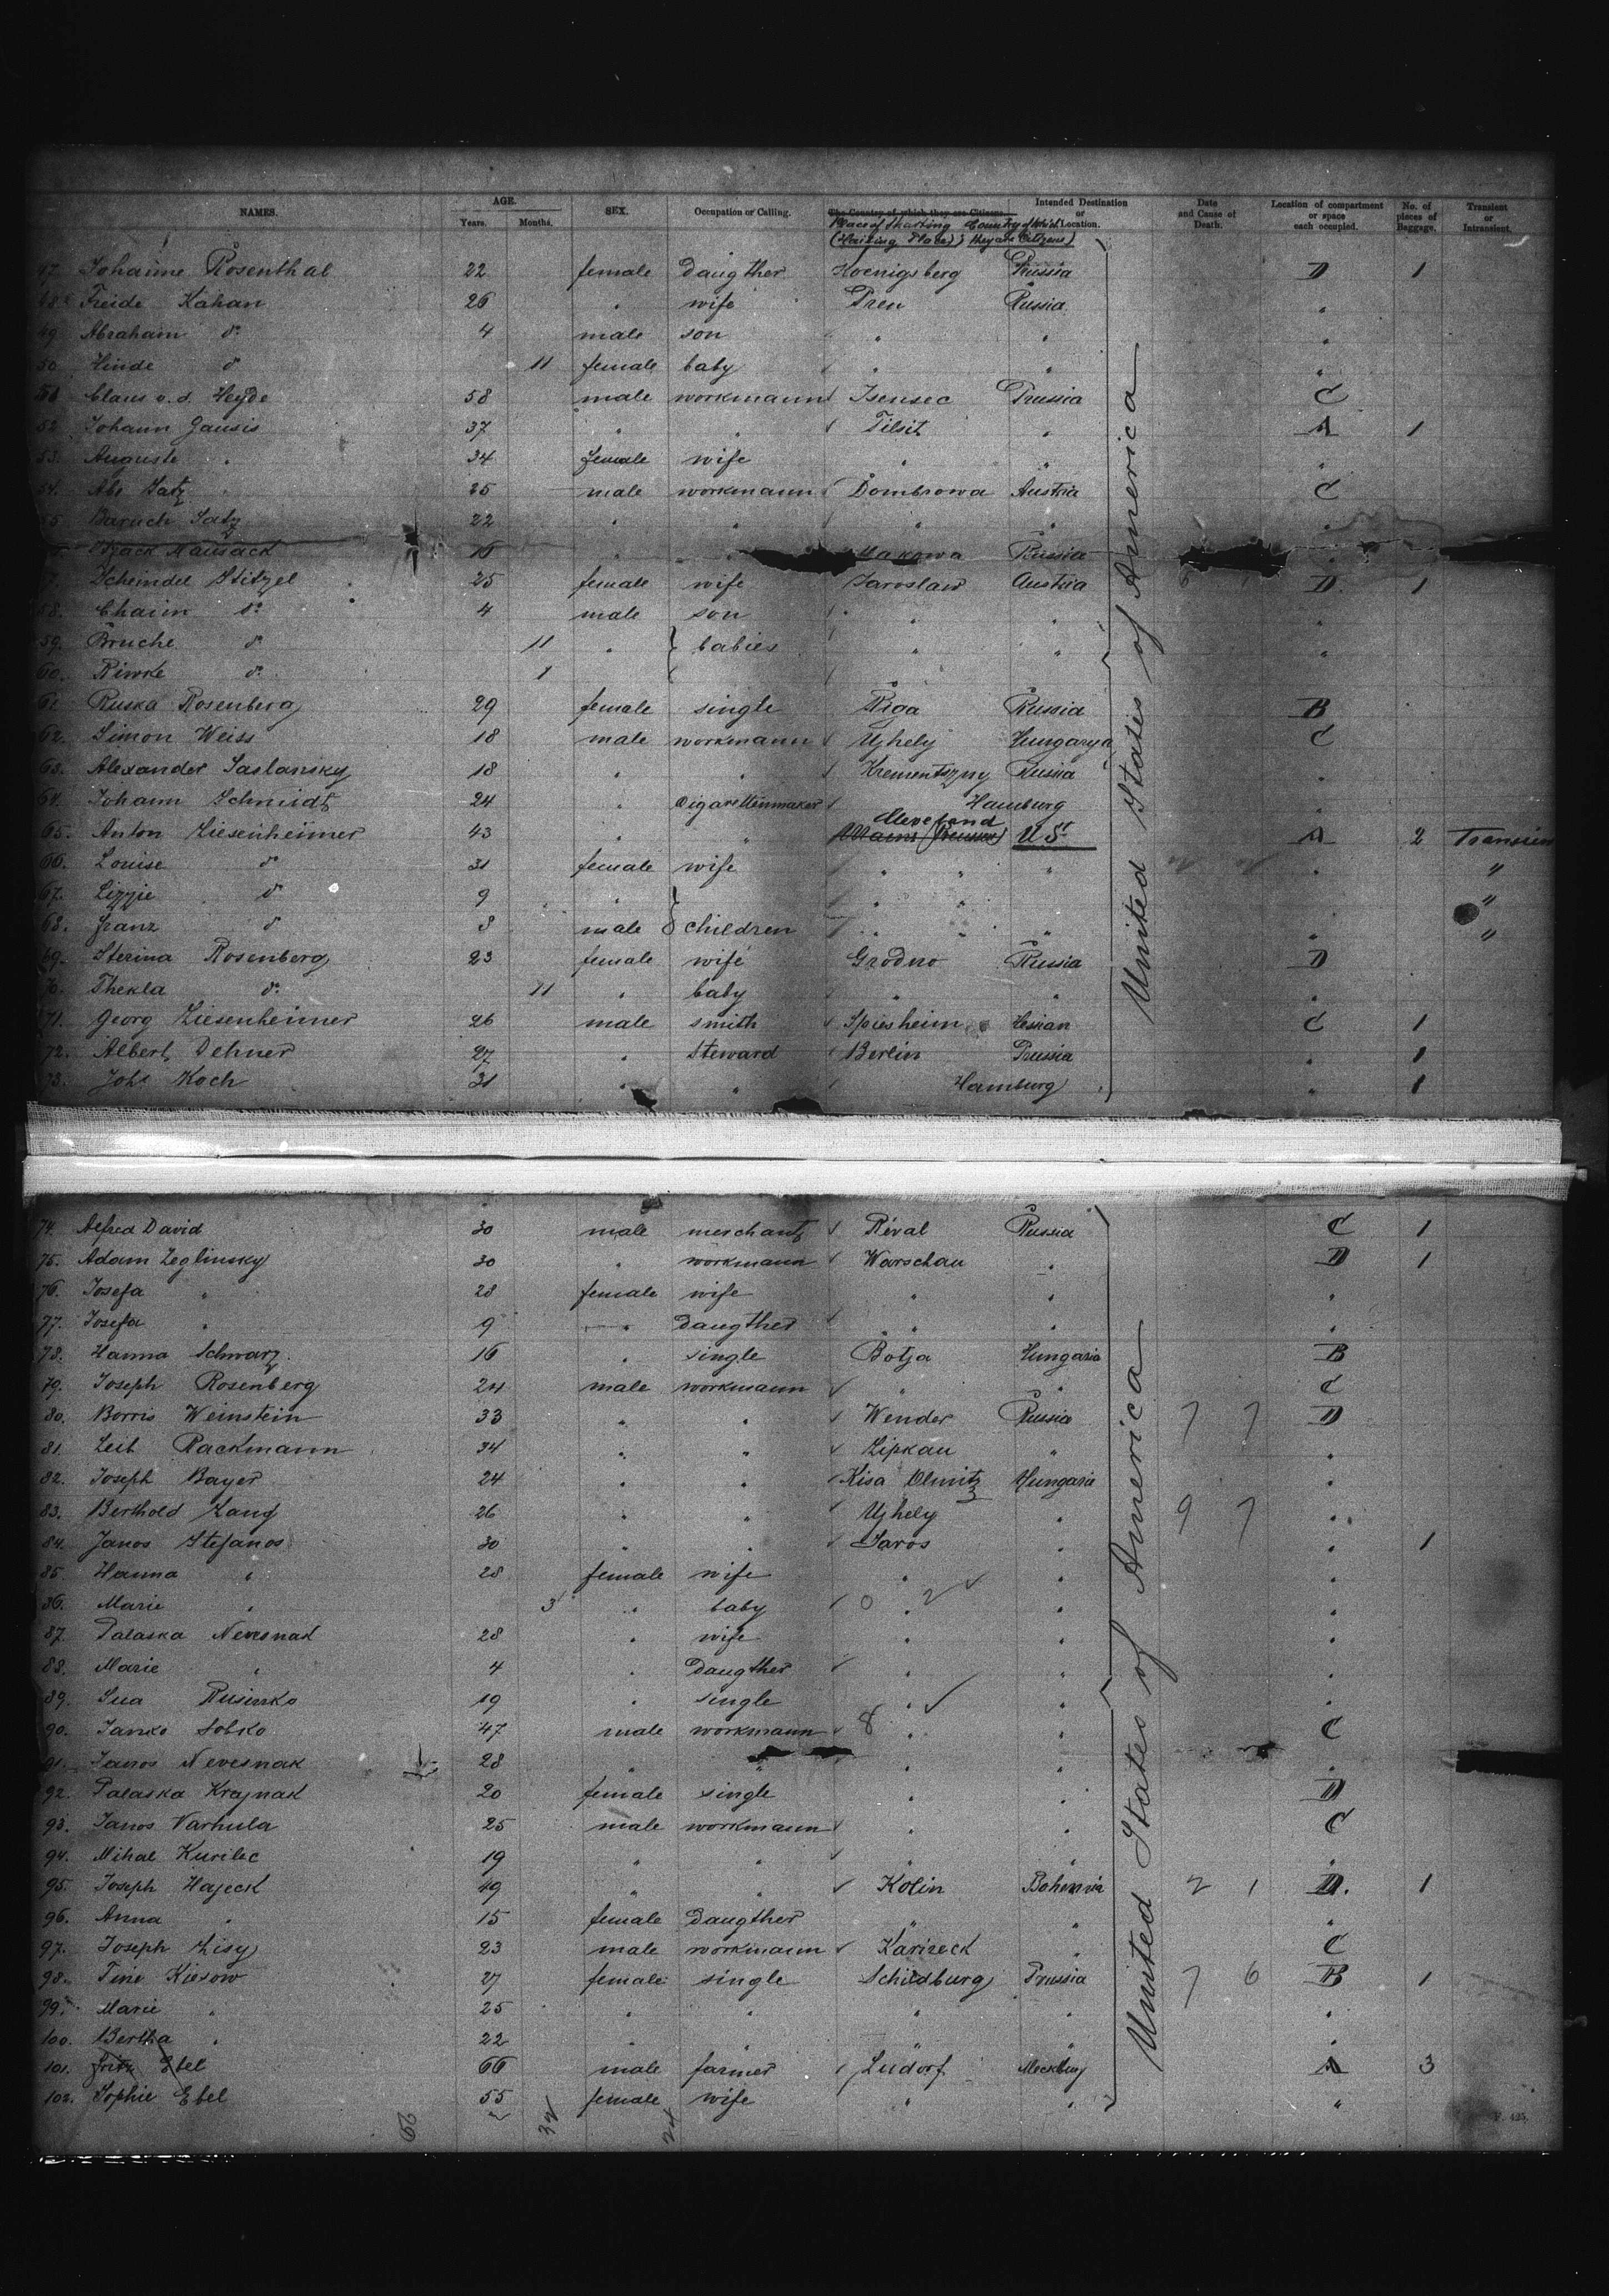 NAMES. AGE. Years. Months. SEX. Occupation or Calling. The Country of which they are Citizens. Intended Destination or Location. Date and Cause of Death. Location of compartment or space each occupied. No. of pieces of Baggage. Transient or Intransient.
Place of Starting Country of which
(Starting Place) they are Citizens)
47. Johanne Rosenthal 22 female Daugther Koenigsberg Prussia D 1
48. Freide Kahan 26 " wife Pren Russia "
49. Abraham do 4 male son " " "
50. Hinde do 11 female baby " " "
51. Claus v. d. Heyde 58 male workmann Isensec Prussia C
52. Johann Gausis 37 " " Tilsit " A 1
53. Auguste " 34 female wife " " "
54. Abr Satz 25 male workmann Dombrowa Austria C
55. Baruch Satz 22 " " " " "
Mausack 16 " " Makowa Russia "
57. Scheindel Stitzel 25 female wife Jaroslaw Austria D. 1
58. Chaim do 4 male son " " "
59. Bruche do 11 " } babies " " "
60. Riwke do 1
61. Ruska Rosenberg 29 female single Riga Russia B
62. Simon Weiss 18 male workmann Ujhely Hungarya C
63. Alexander Saslansky 18 " " Krementszny Russia "
64. Johann Schmidt 24 " Cigarettinmaker Hamburg "
Cleveland
65. Anton Ziesenheimer 43 " " U St A 2 Transien
66. Louise do 31 female wife " " " " "
67. Lizzie do 9 " " " "
68. Franz do 8 male } children " " " " "
69. Sterina Rosenberg 23 female wife Grodno Russia D
70. Thekla do 11 " baby " " "
71. Georg Ziesenheimer 26 male smith Spiesheim Hessian C 1
72. Albert Dehner 27 " Steward Berlin Prussia " 1
73. Johs Koch 31 " " Hamburg " 1
United States of America
74. Alfred David 30 male merchant Réval Russia C 1
75. Adam Zeglinsky 30 " workmann Warschau " D 1
76. Josefa " 28 female wife " " "
77. Josefa " 9 " Daugther " " "
78. Hanna Schwarz 16 " single Botja Hungaria B
79. Joseph Rosenberg 24 male workmann " " C
80. Borris Weinstein 33 " " Wender Russia 7 7 D
81. Leib Rackmann 34 " " Lipkau " "
82. Joseph Bayer 24 " " Kisa Olmitz Hungaria "
83. Berthold Lang 26 " " Ujhely " 9 7 "
84. Janos Stefanos 30 " " Saros " " 1
85. Hanna " 28 female wife " " "
86. Marie " 3 " baby 0 " 2 " "
87. Palaska Nevesnak 28 " wife " " "
88. Marie " 4 " Daugther " " "
89. Sua Rusinko 19 " single " " "
90. Janko Sobko 47 male workmann 8 " " C
91. Janos Nevesnak 28 " " " " "
92. Palaska Krajnak 20 female single " " D
93. Janos Varhula 25 male workmann " " C
94. Mihal Kurilec 19 " " " " "
95. Joseph Hajeck 49 " " Kolin Bohemia 2 1 D. 1
96. Anna " 15 female Daugther " " "
97. Joseph Lisy 23 male workmann Karizeck " C
98. Tine Kiesow 27 female single Schildburg Prussia 7 6 B 1
99. Marie " 25 " " " " "
100. Bertha " 22 " " " " "
101. Fritz Ebel 66 male farmer Ludorf Mecklbug A 3
102. Sophie Ebel 55 female wife " " "
United States of America
F. 425.